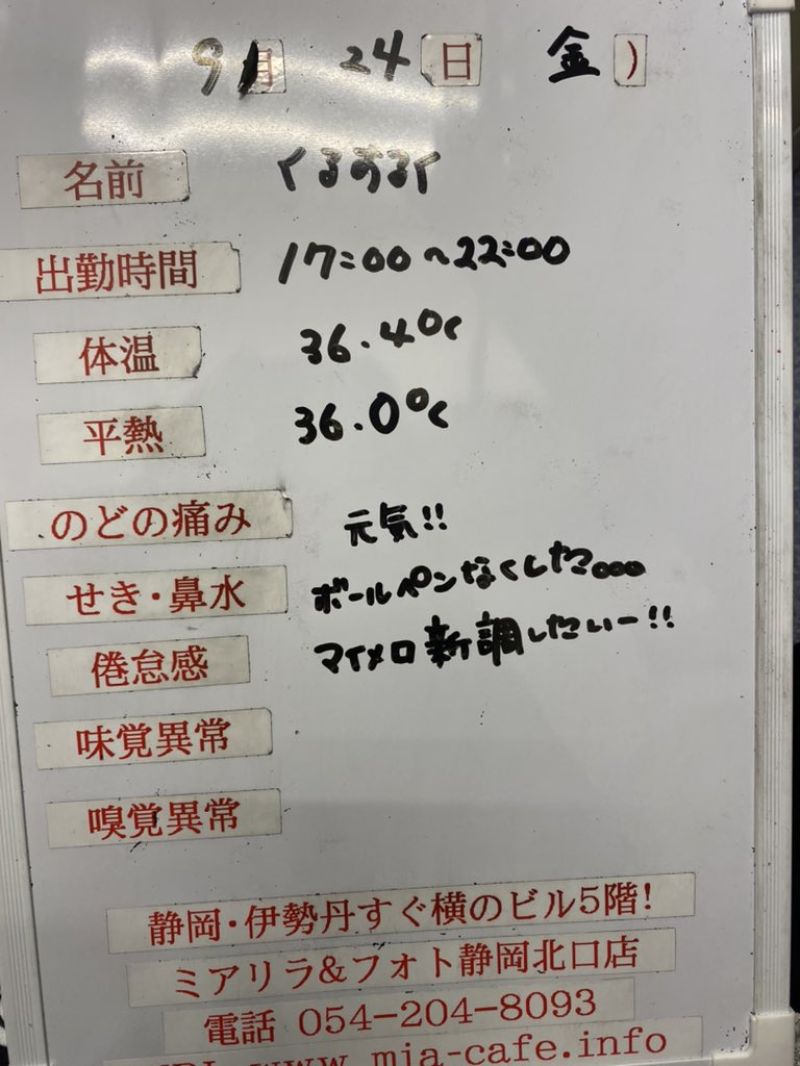 9月 24日 金)
名前 くるするく
出勤時間 17:00~22:00
体温 36.4℃
平熱 36.0℃
のどの痛み 元気!!
せき・鼻水 ボールペンなくした。。。
倦怠感 マイメロ新調したいー!!
味覚異常
嗅覚異常
静岡・伊勢丹すぐ横のビル5階!
ミアリラ&フォト静岡北口店
電話 054-204-8093
www.mia-cafe.info